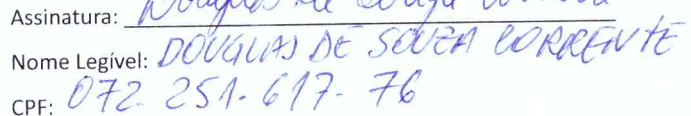 Assinatura: Douglas de Souza
Nome Legível: DOUGLAS DE SOUZA CORRENTE
CPF: 072-251.617-76